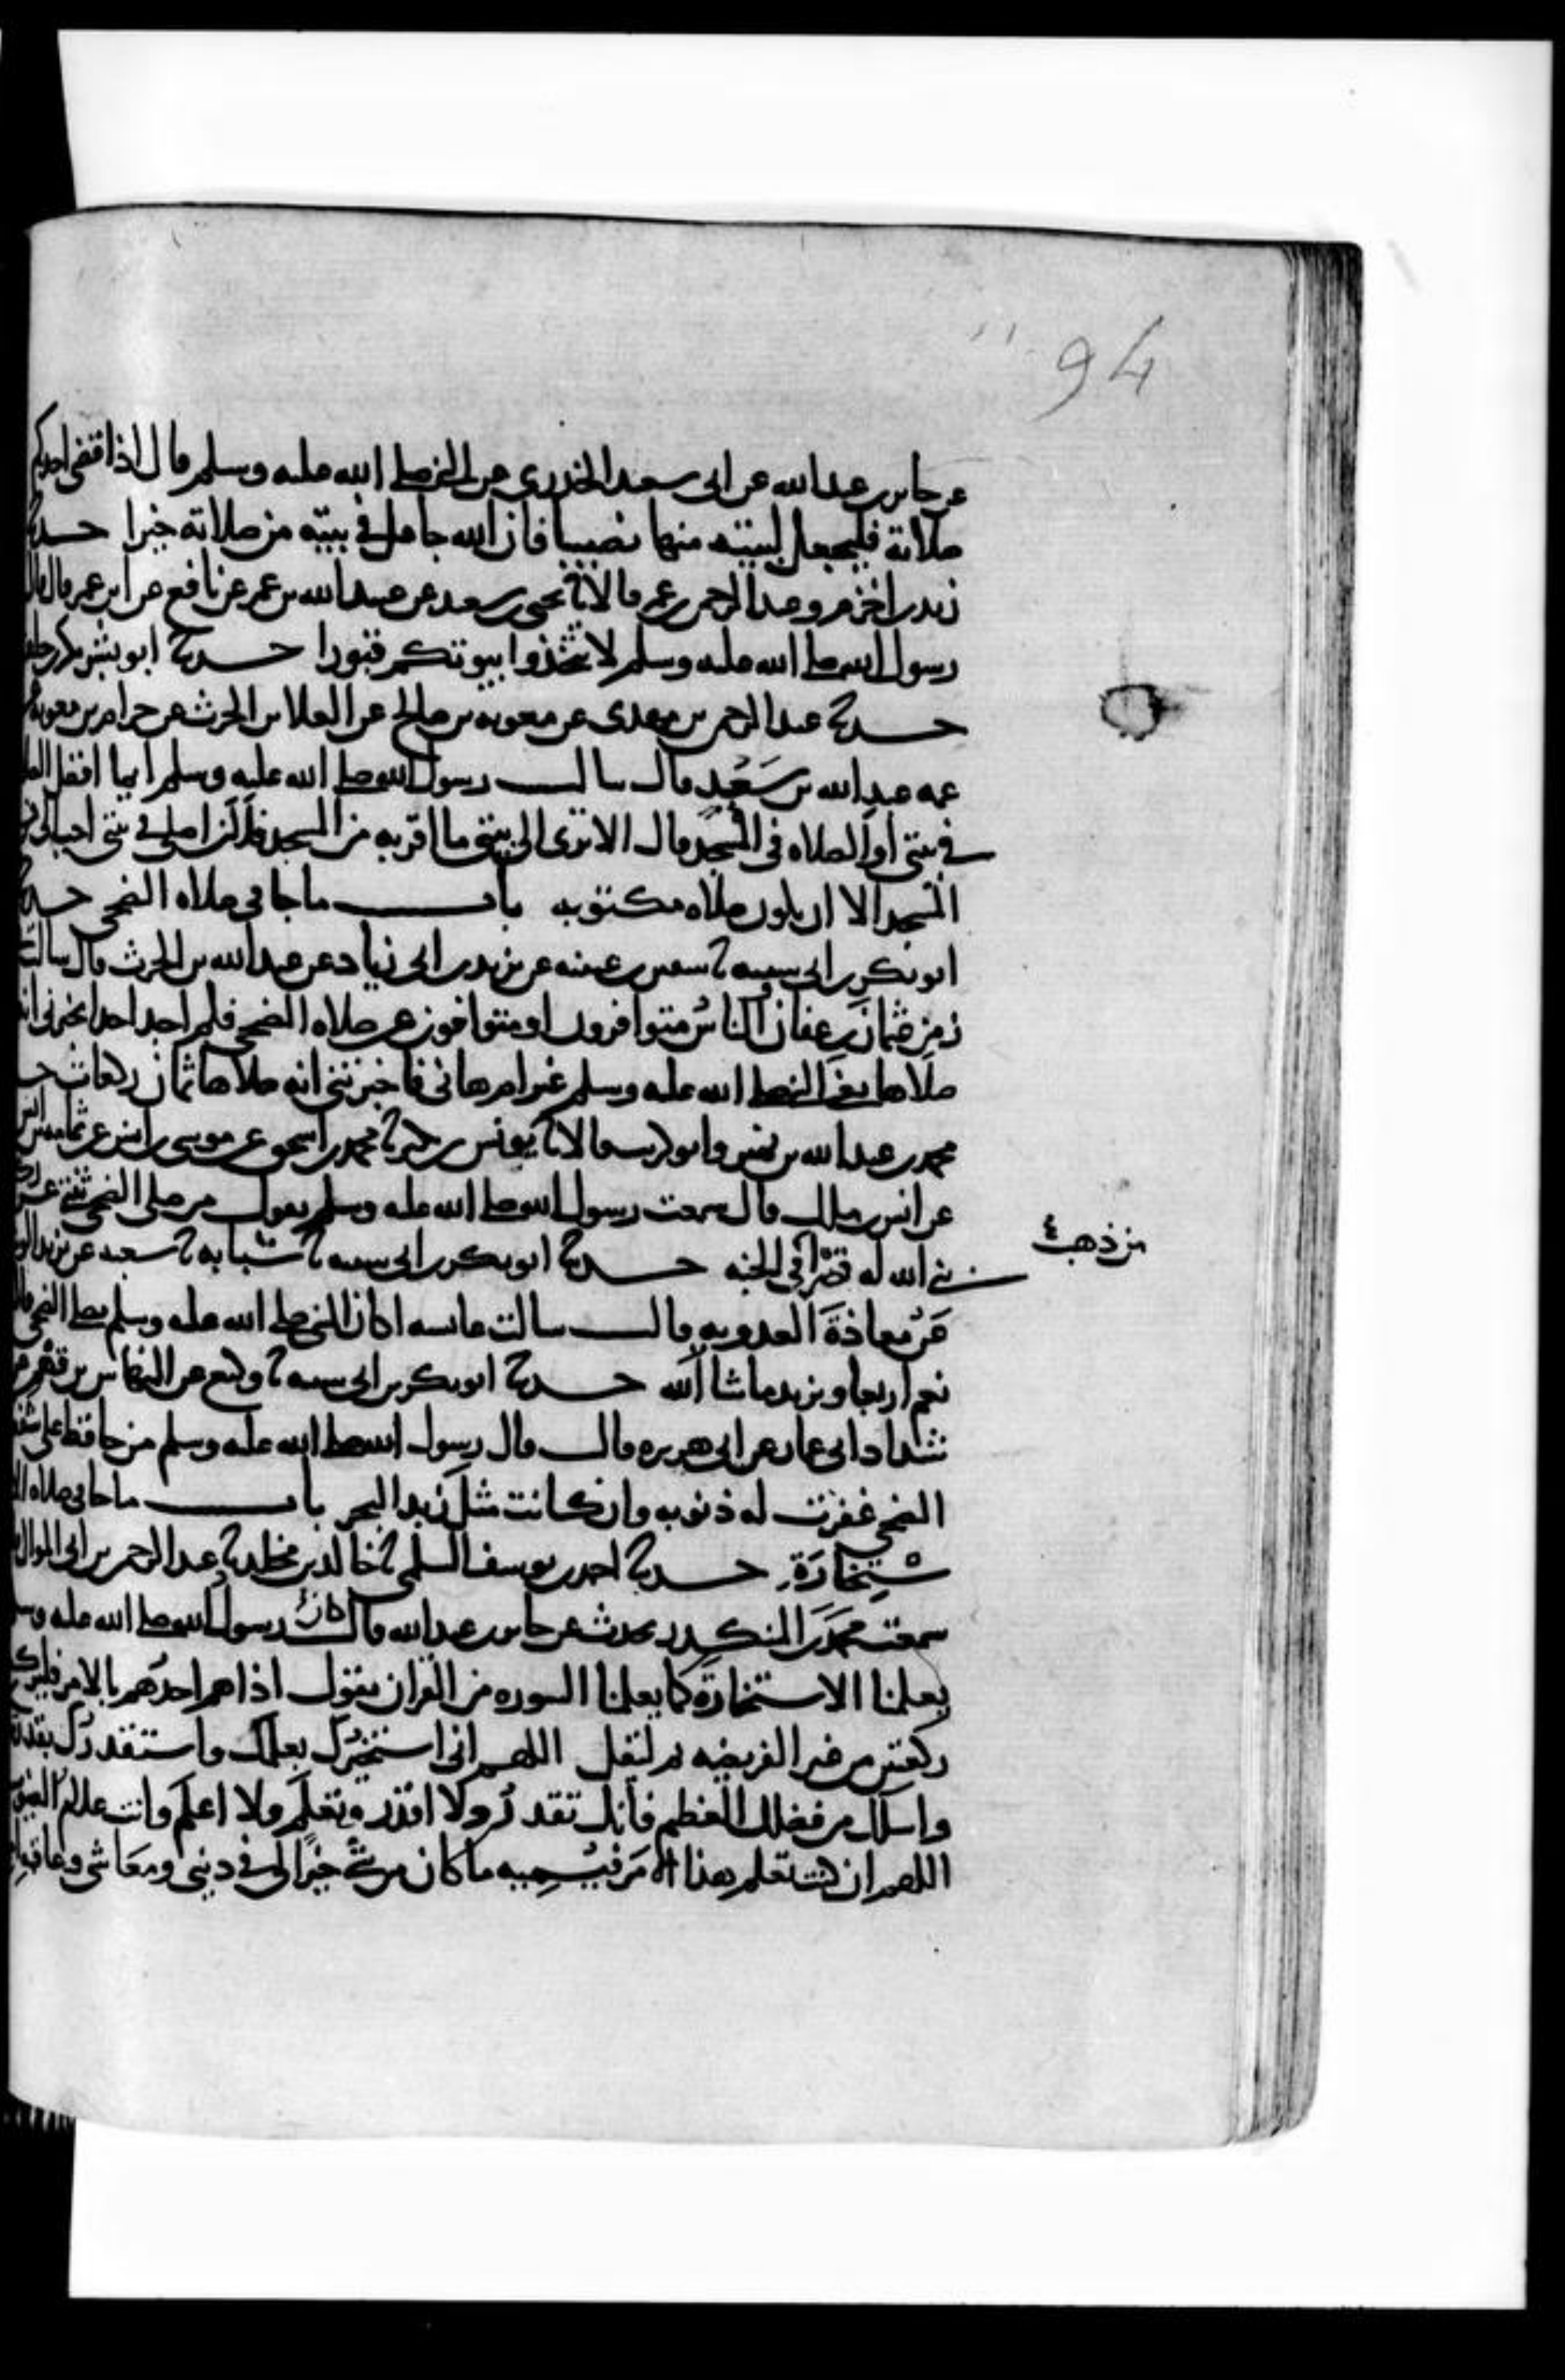 94
عن جابر بن عبد الله عن ابى سعيد الخدرى عن النبي صلى الله عليه وسلم قال اذا قضى احدكم
صلاته فليجعل لبيته منها نصيبا فان الله جاعل في بيته من صلاته خيرا حدثنا
زيد بن اخزم وعبد الرحمن بن عمر قالا ثنا يحيى بن سعيد عن عبيد الله بن عمر عن نافع عن ابن عمر قال قال
رسول الله صلى الله عليه وسلم لا تتخذوا بيوتكم قبورا حدثنا ابو بشر بكر بن خلف
حدثنا عبد الرحمن بن مهدى عن معويه بن صالح عن العلا بن الحرث عن حرام بن معويه
عمه عبد الله بن سعد قال سالت رسول الله صلى الله عليه وسلم ايما افضل الصلا
في بيتى او الصلاه فى المسجد قال الا ترى الى بيتى ما اقربه من المسجد فلان اصلى في بيتى احب الى
المسجد الا ان يكون صلاه مكتوبه باب ما جا فى صلاه الضحى حدثنا
ابو بكر بن ابى سيبه ثنا سفين بن عيينه عن يزيد بن ابى زياد عن عبد الله بن الحرث قال سالت
زمن عثمان بن عفان والناس متوافرون او متوافون عن صلاه الضحى فلم اجد احدا يخبرنى انه
صلاها يعنى النبي صلى الله عليه وسلم غير ام هانى فاخبرتنى انه صلاها ثمان ركعات
محمد بن عبد الله بن نمير وابو كريب قالا ثنا يونس بن بكير ثنا محمد بن اسحق عن موسى بن انس عن ثمامه بن انس
عن انس بن ملك قال سمعت رسول الله صلى الله عليه وسلم يقول من صلى الضحى ثنتى عشره
بنى الله له قصرا فى الجنه حدثنا ابو بكر بن ابى سيبه ثنا شبابه ثنا سعبه عن يزيد
من ذهب
عن معاذة العدويه قالت سالت عايسه اكان النبي صلى الله عليه وسلم يصلى الضحى قالت
نعم اربعا ويزيد ما شا الله حدثنا ابو بكر بن ابى سيبه ثنا وكيع عن النهاس بن قهم عن
شداد ابى عمار عن ابى هريره قال قال رسول الله صلى الله عليه وسلم من حافظ على شفعه
الضحى غفرت له ذنوبه وان كانت مثل زبد البحر باب ما جا فى صلاه الا
ستخارة حدثنا احمد بن يوسف السلمى ثنا خالد بن مخلد ثنا عبد الرحمن بن ابى الموال
سمعت محمد بن المنكدر يحدث عن جابر بن عبد الله قال كان رسول الله صلى الله عليه وسلم
يعلمنا الاستخارة كما يعلمنا السوره من القران يقول اذا هم احدكم بالامر فليركع
ركعتين من غير الفريضه ثم ليقل اللهم انى استخيرك بعلمك واستقدرك بقدرتك
واسلك من فضلك العظيم فانك تقدر ولا اقدر وتعلم ولا اعلم وانت علام الغيوب
اللهم ان كنت تعلم هذا الامر فيسميه ما كان من شئ خيرا لى فى دينى ومعاشى وعاقبه